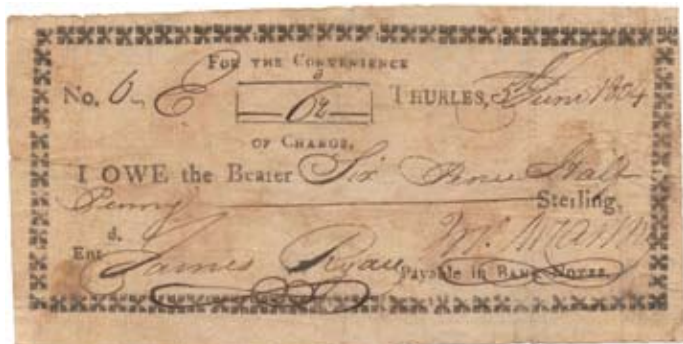 FOR THE CONVENIENCE
No. 6 E 6½ THURLES, 3 June 1804
OF CHANGE,
I OWE the Bearer Six Pence Half
Penny Sterling,
Ent d. James Ryan
Payable in BANK NOTES.